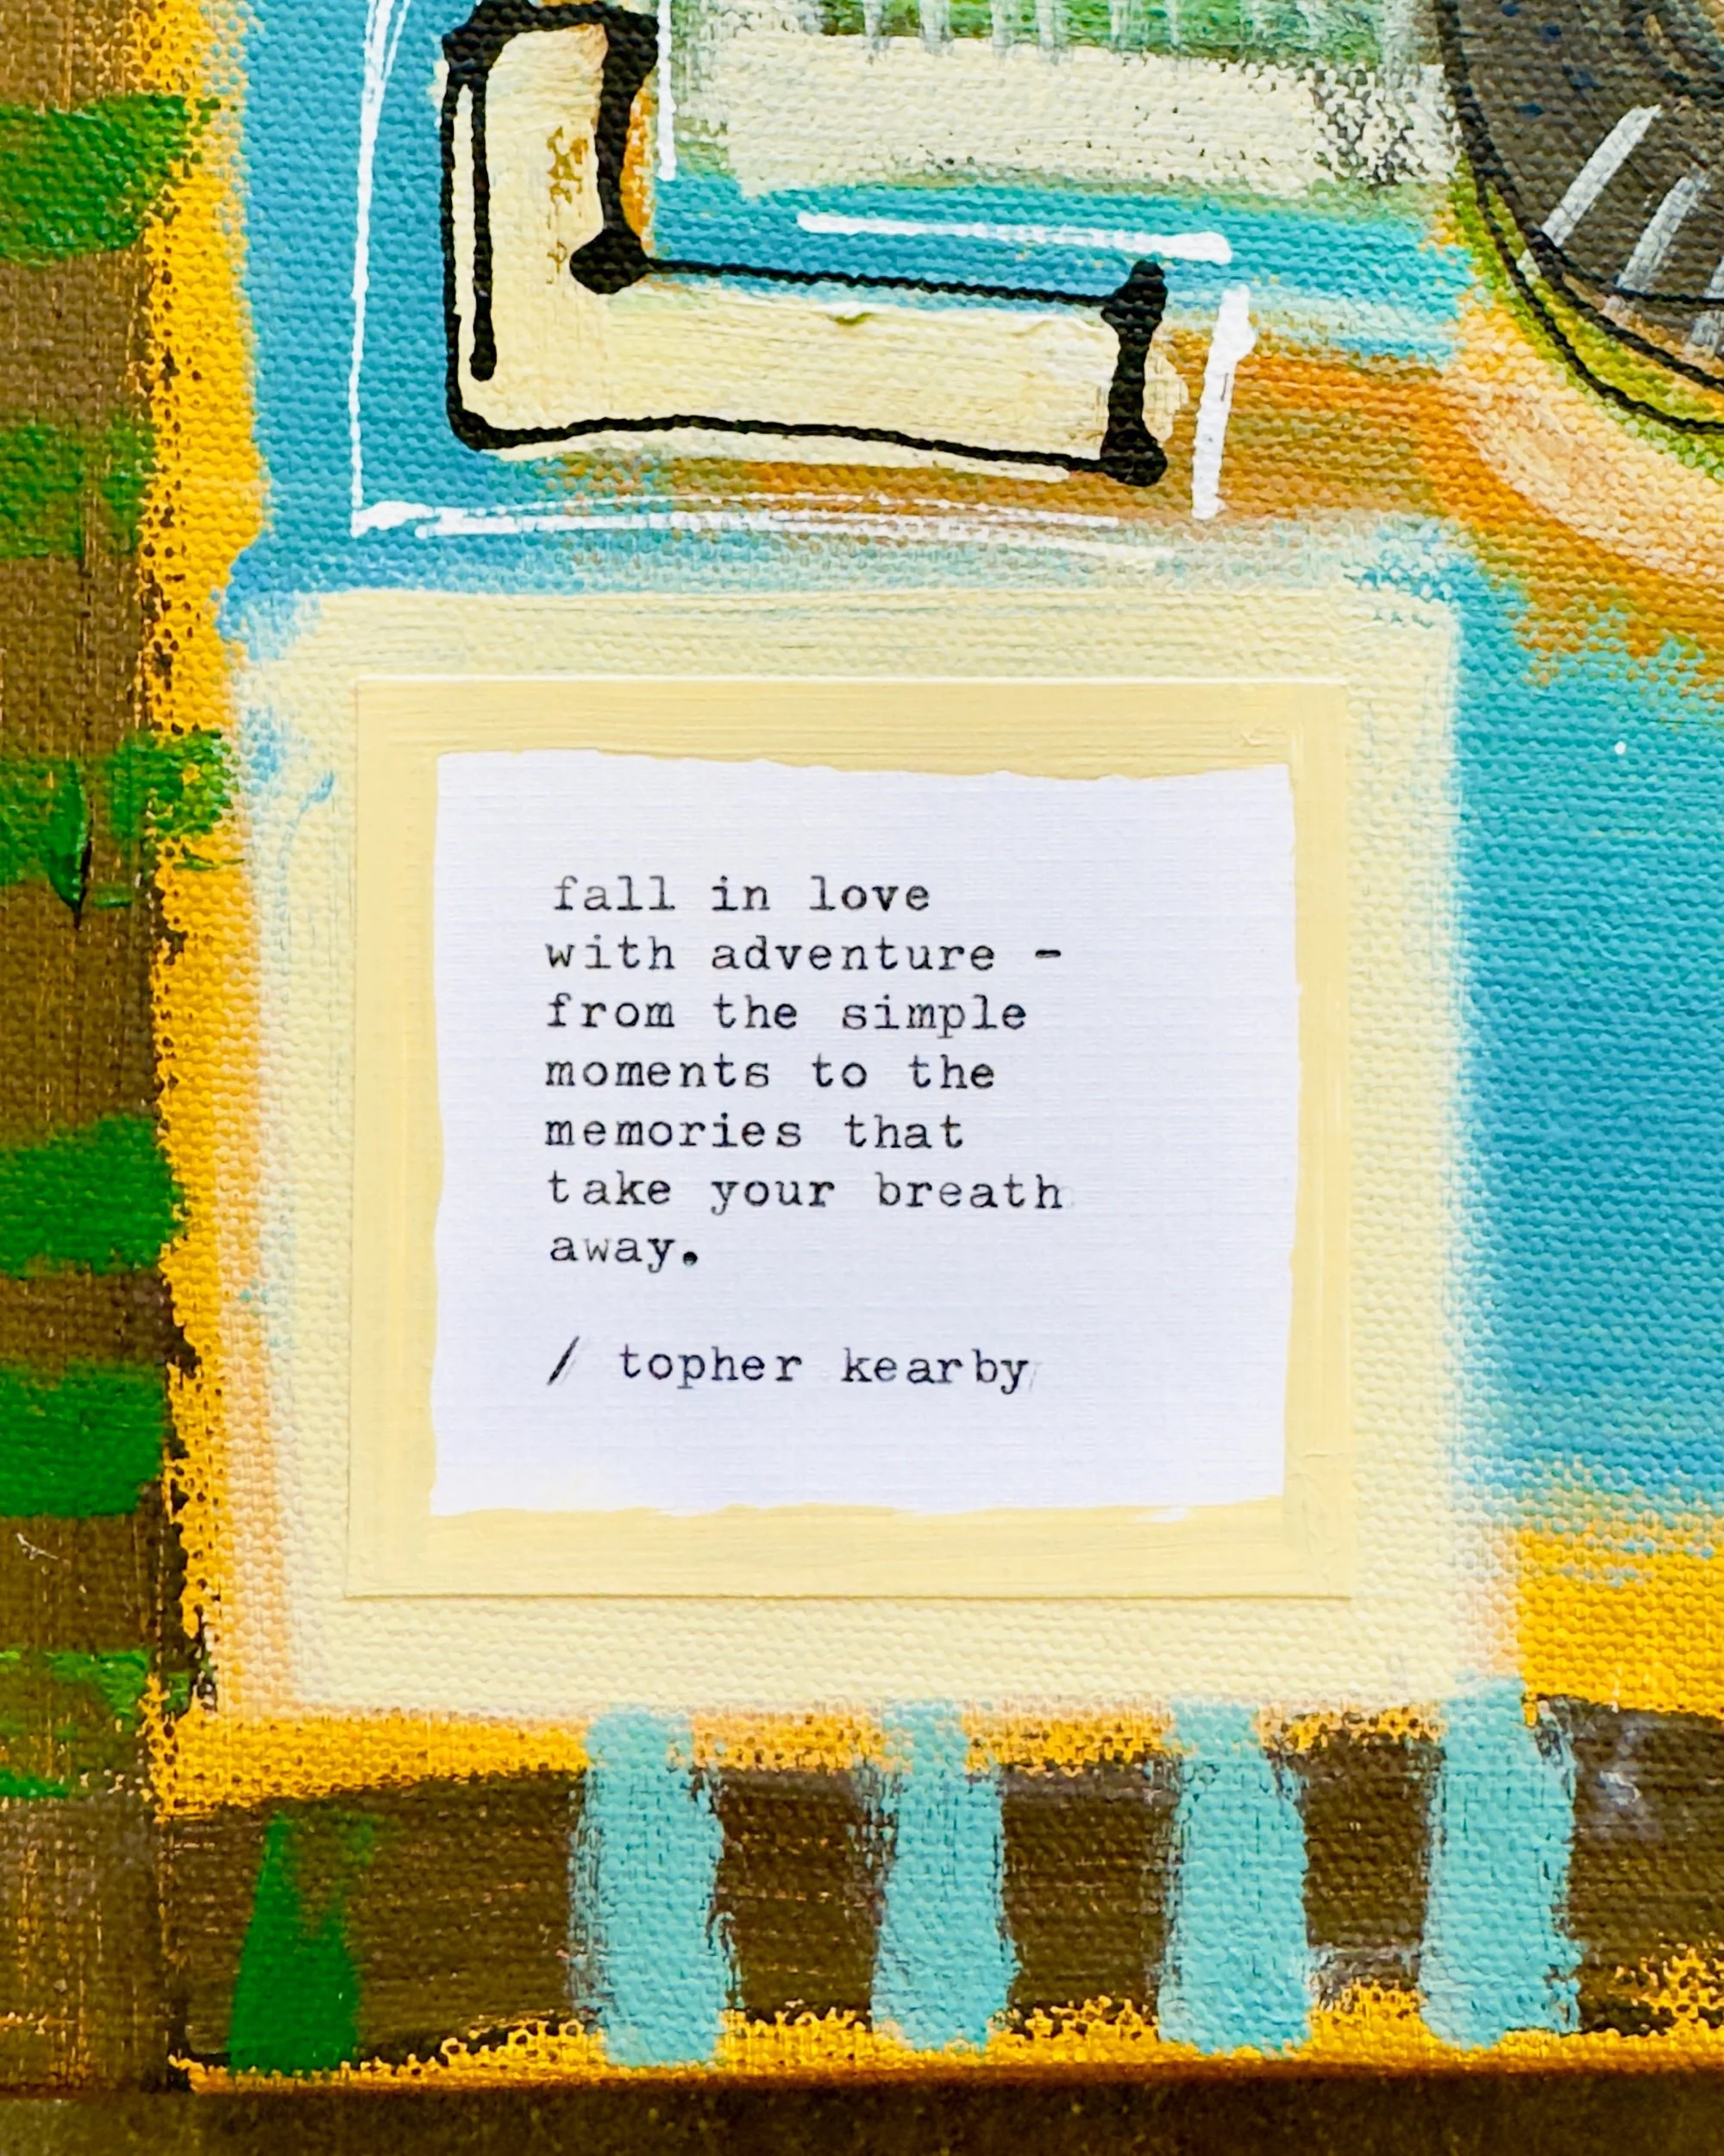 fall in love
with adventure -
from the simple
moments to the
memories that
take your breath
away.
/ topher kearby